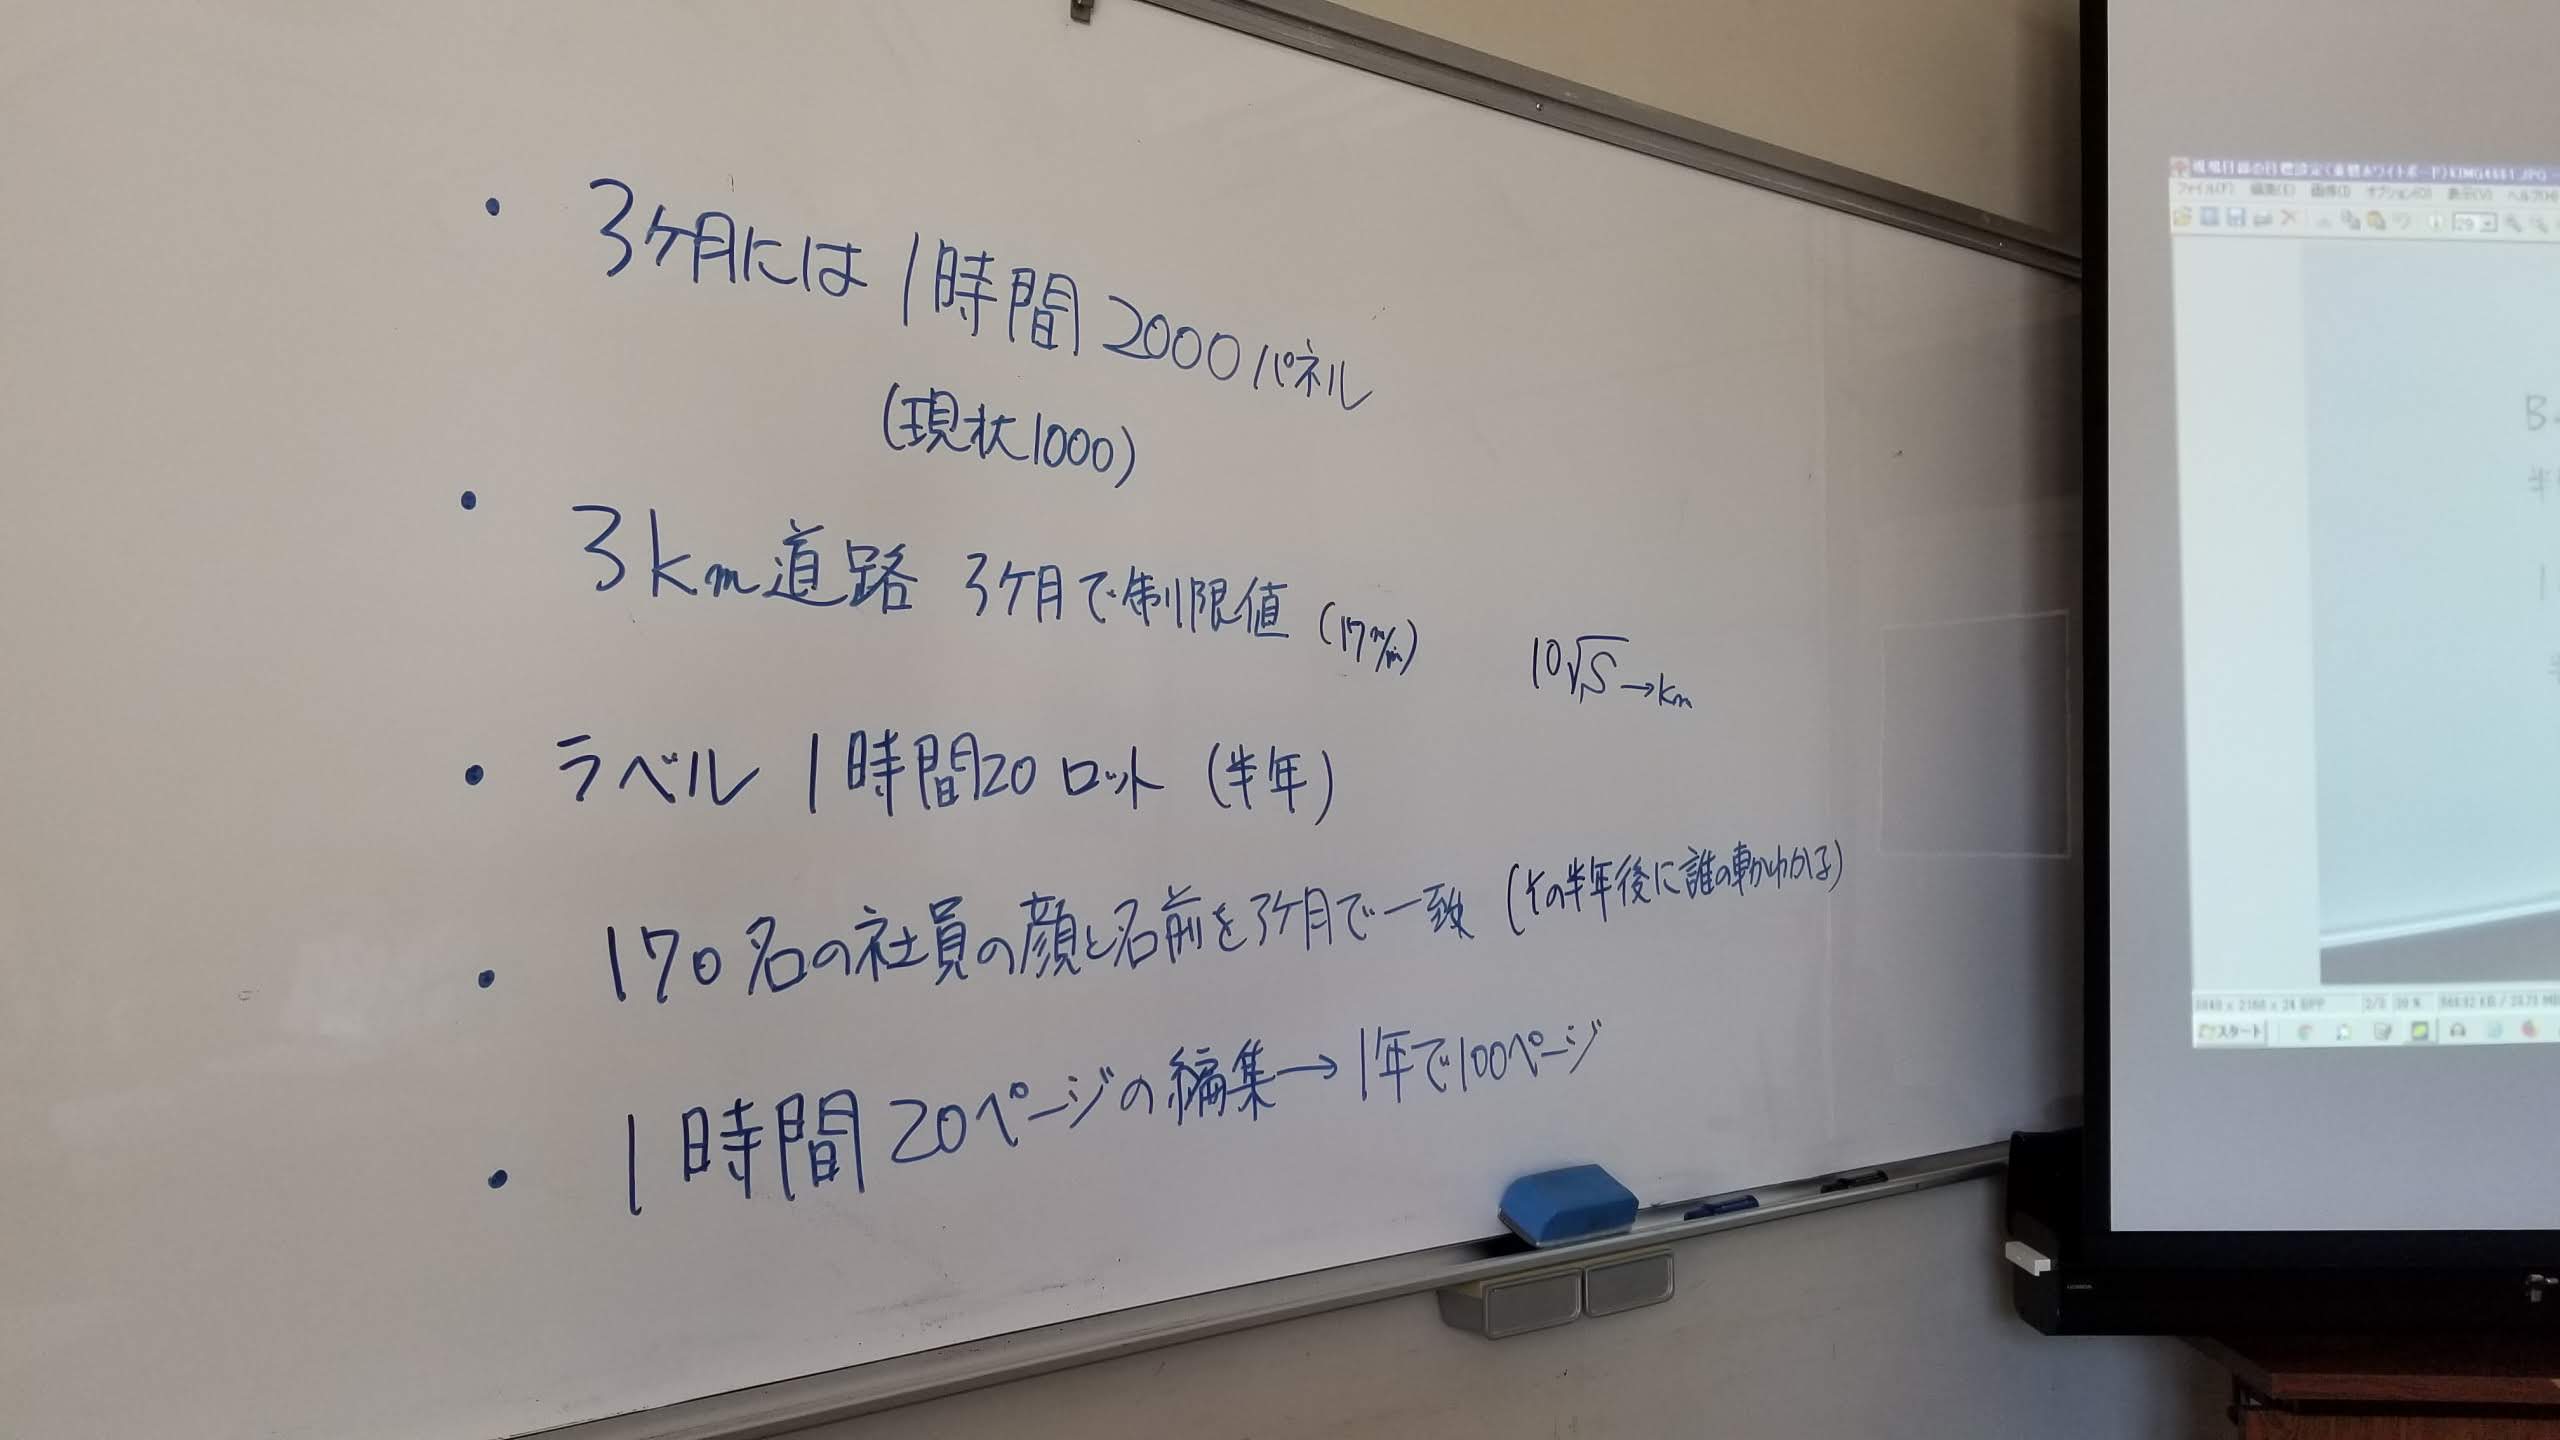 ・ 3ヶ月には 1時間 2000パネル
(現状1000)
・ 3km道路 3ヶ月で制限値 (17m/min)
10√S→km
・ ラベル 1時間20ロット (半年)
・ 170名の社員の顔と名前を3ヶ月で一致 (その半年後に誰の車かわかる)
・ 1時間20ページの編集→1年で100ページ
ファイル(F) 編集(E) 画像(I) オプション(O) 表示(V) ヘルプ(H)
29
B
半
1
スタート